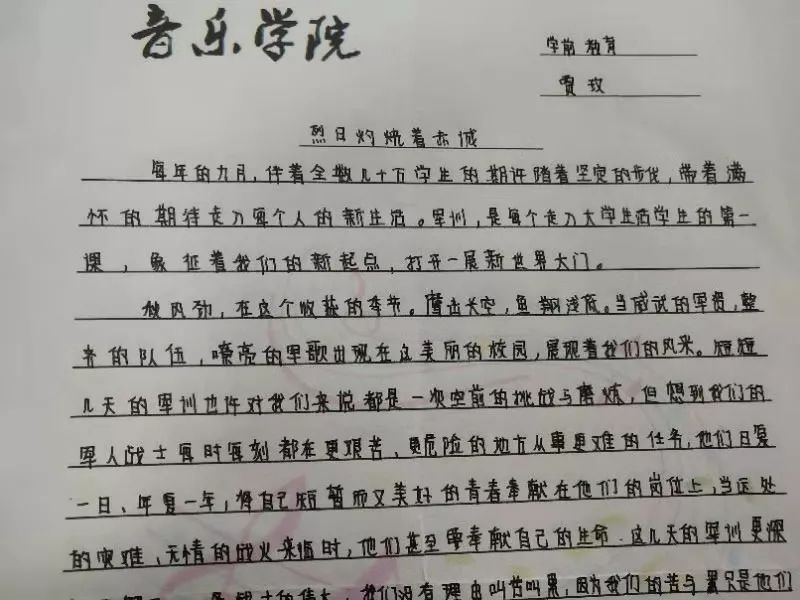 音乐学院
学前教育
贾玫
烈日灼烧着赤诚
每年的九月，伴着全数几十万学生的期许踏着坚定的步伐，带着满
怀的期待走入每个人的新生活。军训，是每个走入大学生活学生的第一
课，象征着我们的新起点，打开一展新世界大门。
秋风劲，在这个收获的季节。鹰击长空，鱼翔浅底。当威武的军资，整
齐的队伍，嘹亮的军歌出现在这美丽的校园，展现着我们的风采。短短
几天的军训也许对我们来说都是一次空前的挑战与磨炼，但想到我们的
军人战士每时每刻都在更艰苦，更危险的地方从事更难的任务，他们日复
一日、年复一年，将自己短暂而又美好的青春奉献在他们的岗位上，当远处
的灾难、无情的战火来临时，他们甚至要奉献自己的生命。这几天的军训更深
的伟大，我们没有理由叫苦叫累，因为我们的苦与累只是他们